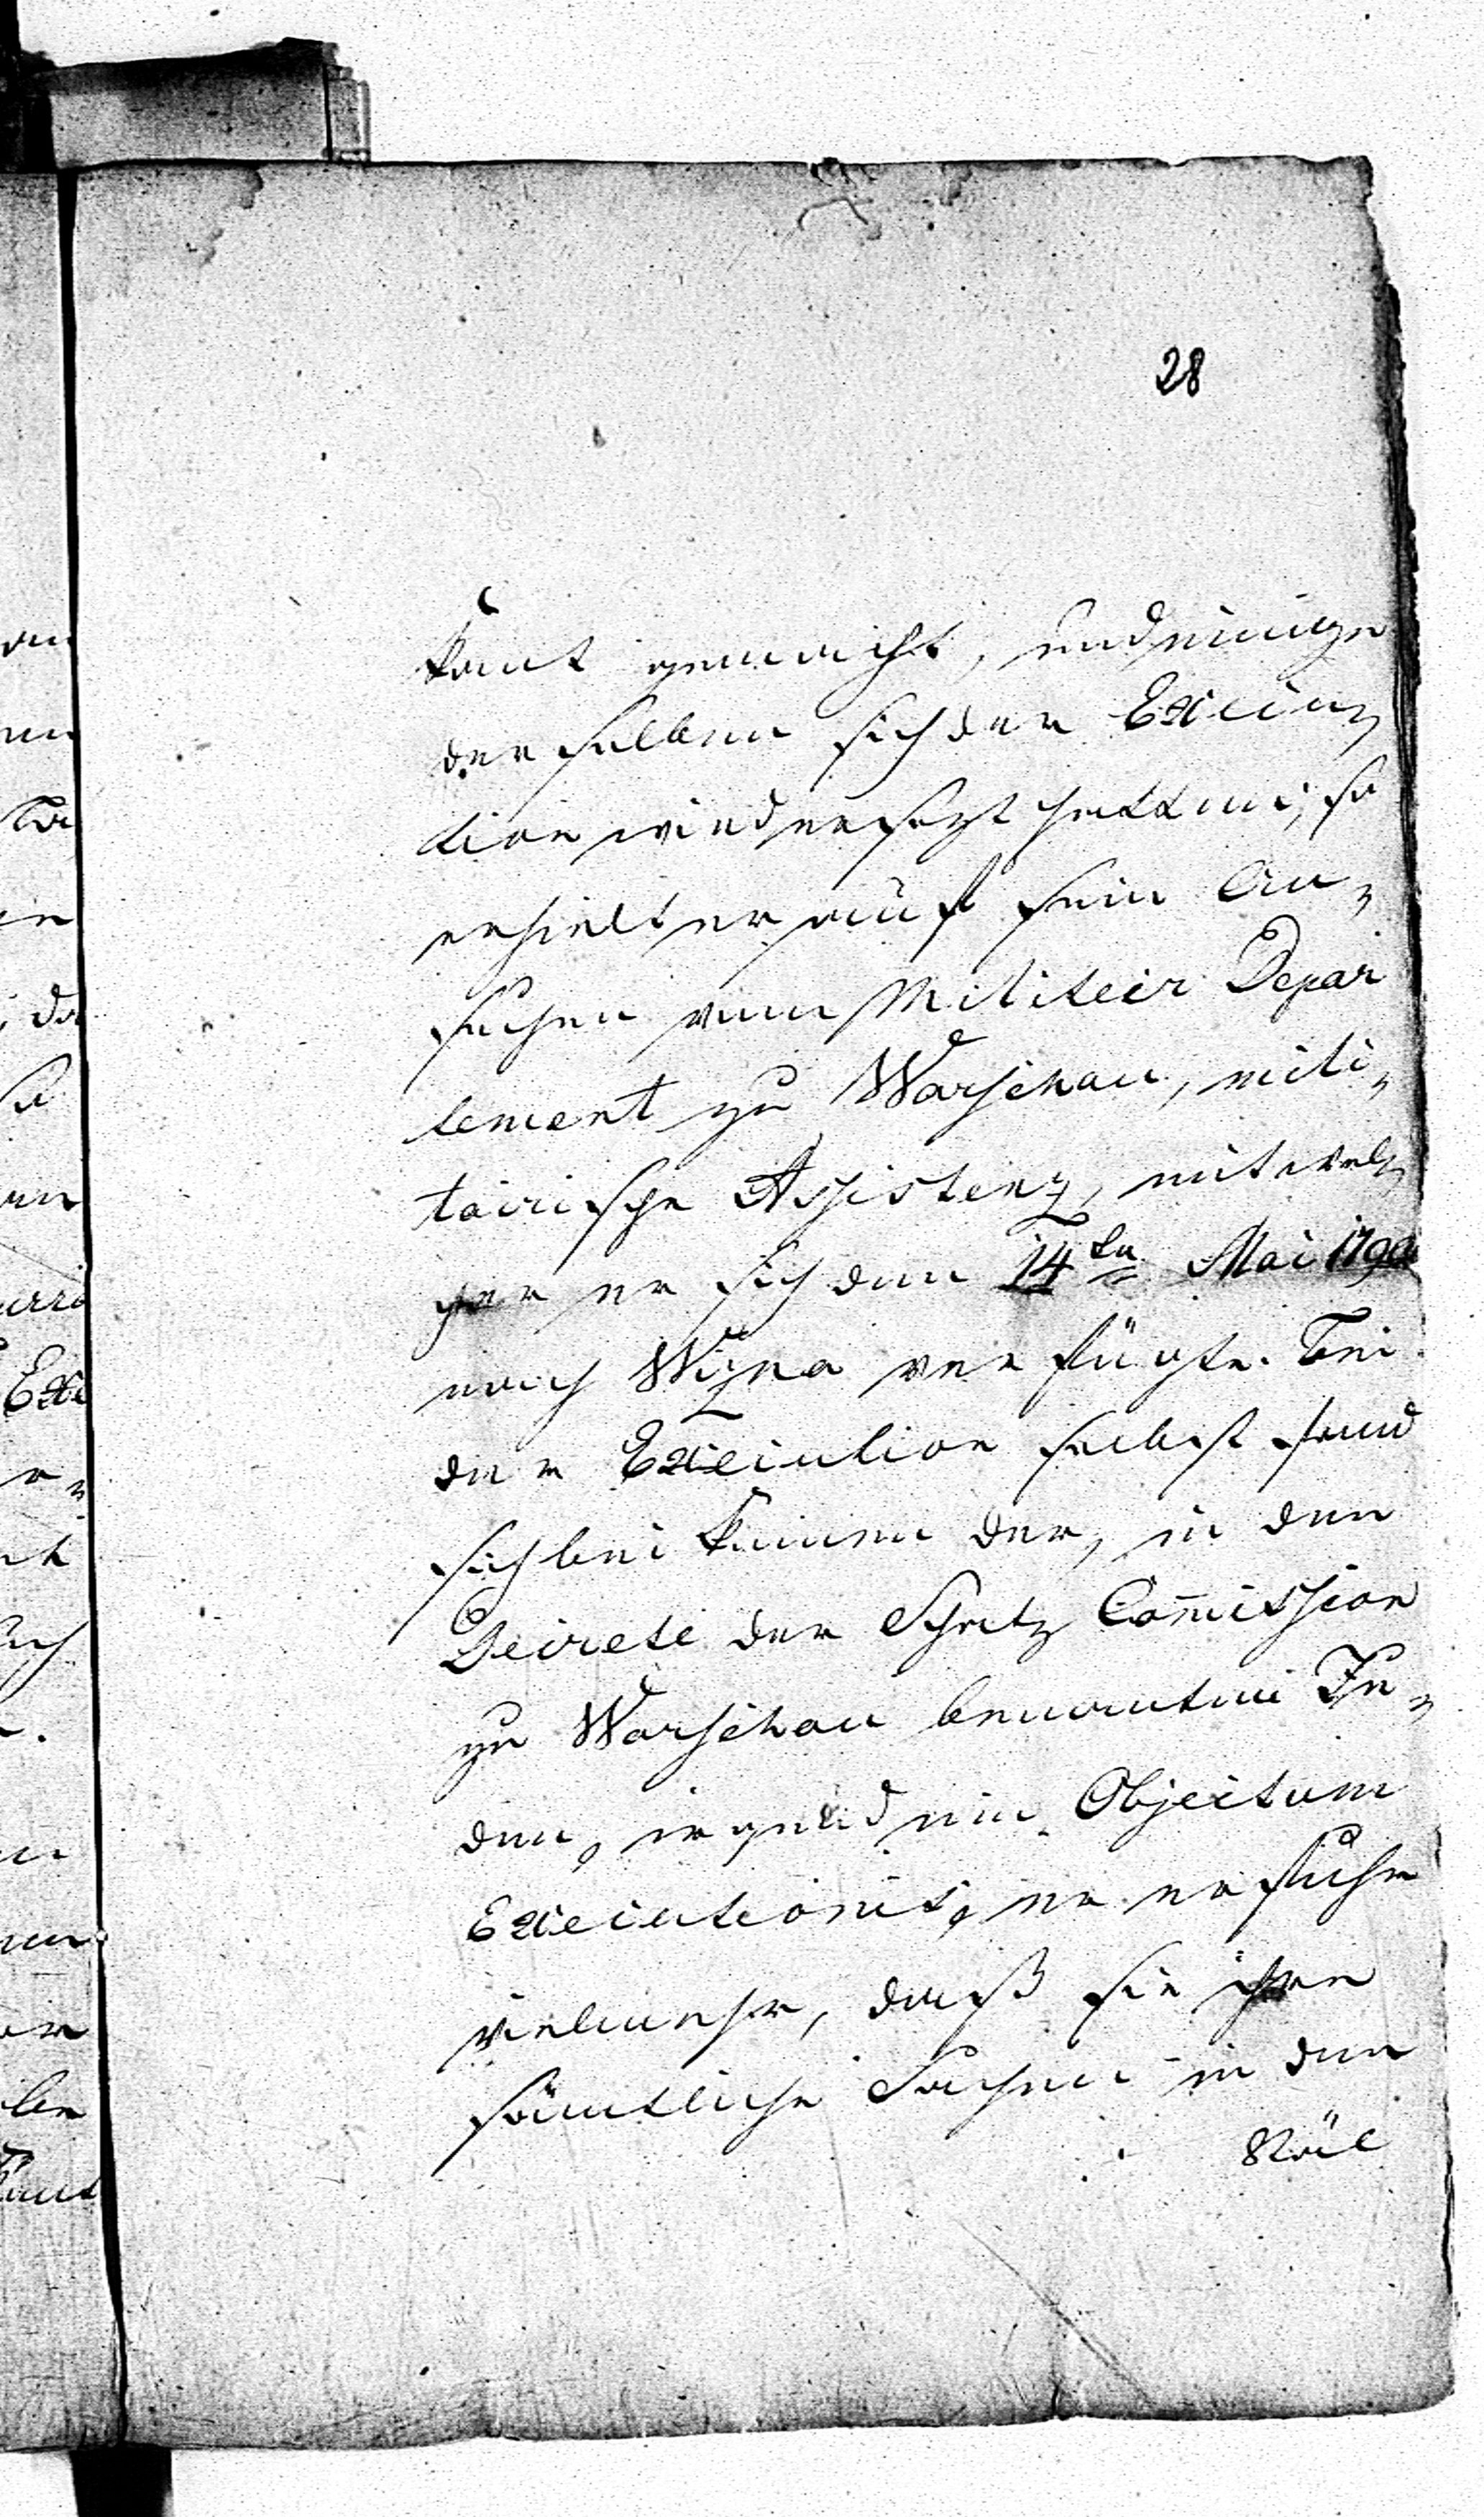 28
kant gemacht, und einige
derselben sich der Execu¬
tion wiedersezt hatten; so
erhielt er auf sein An¬
suchen vom Militair Depar
tement zu Warschau, mili¬
tairische Assistenz, mit wel¬
cher er sich den 14ten Mai 179
nach Wizna verfügte. Bei
der Execution selbst fand
sich bei keinem der, in den
Decrete der Schatz Com̄ission
zu Warschau benanten Ju¬
den, irgend ein Objectum
Executionis, er erfuhr
vielmehr, daß sie ihre
sämtliche Sachen in den